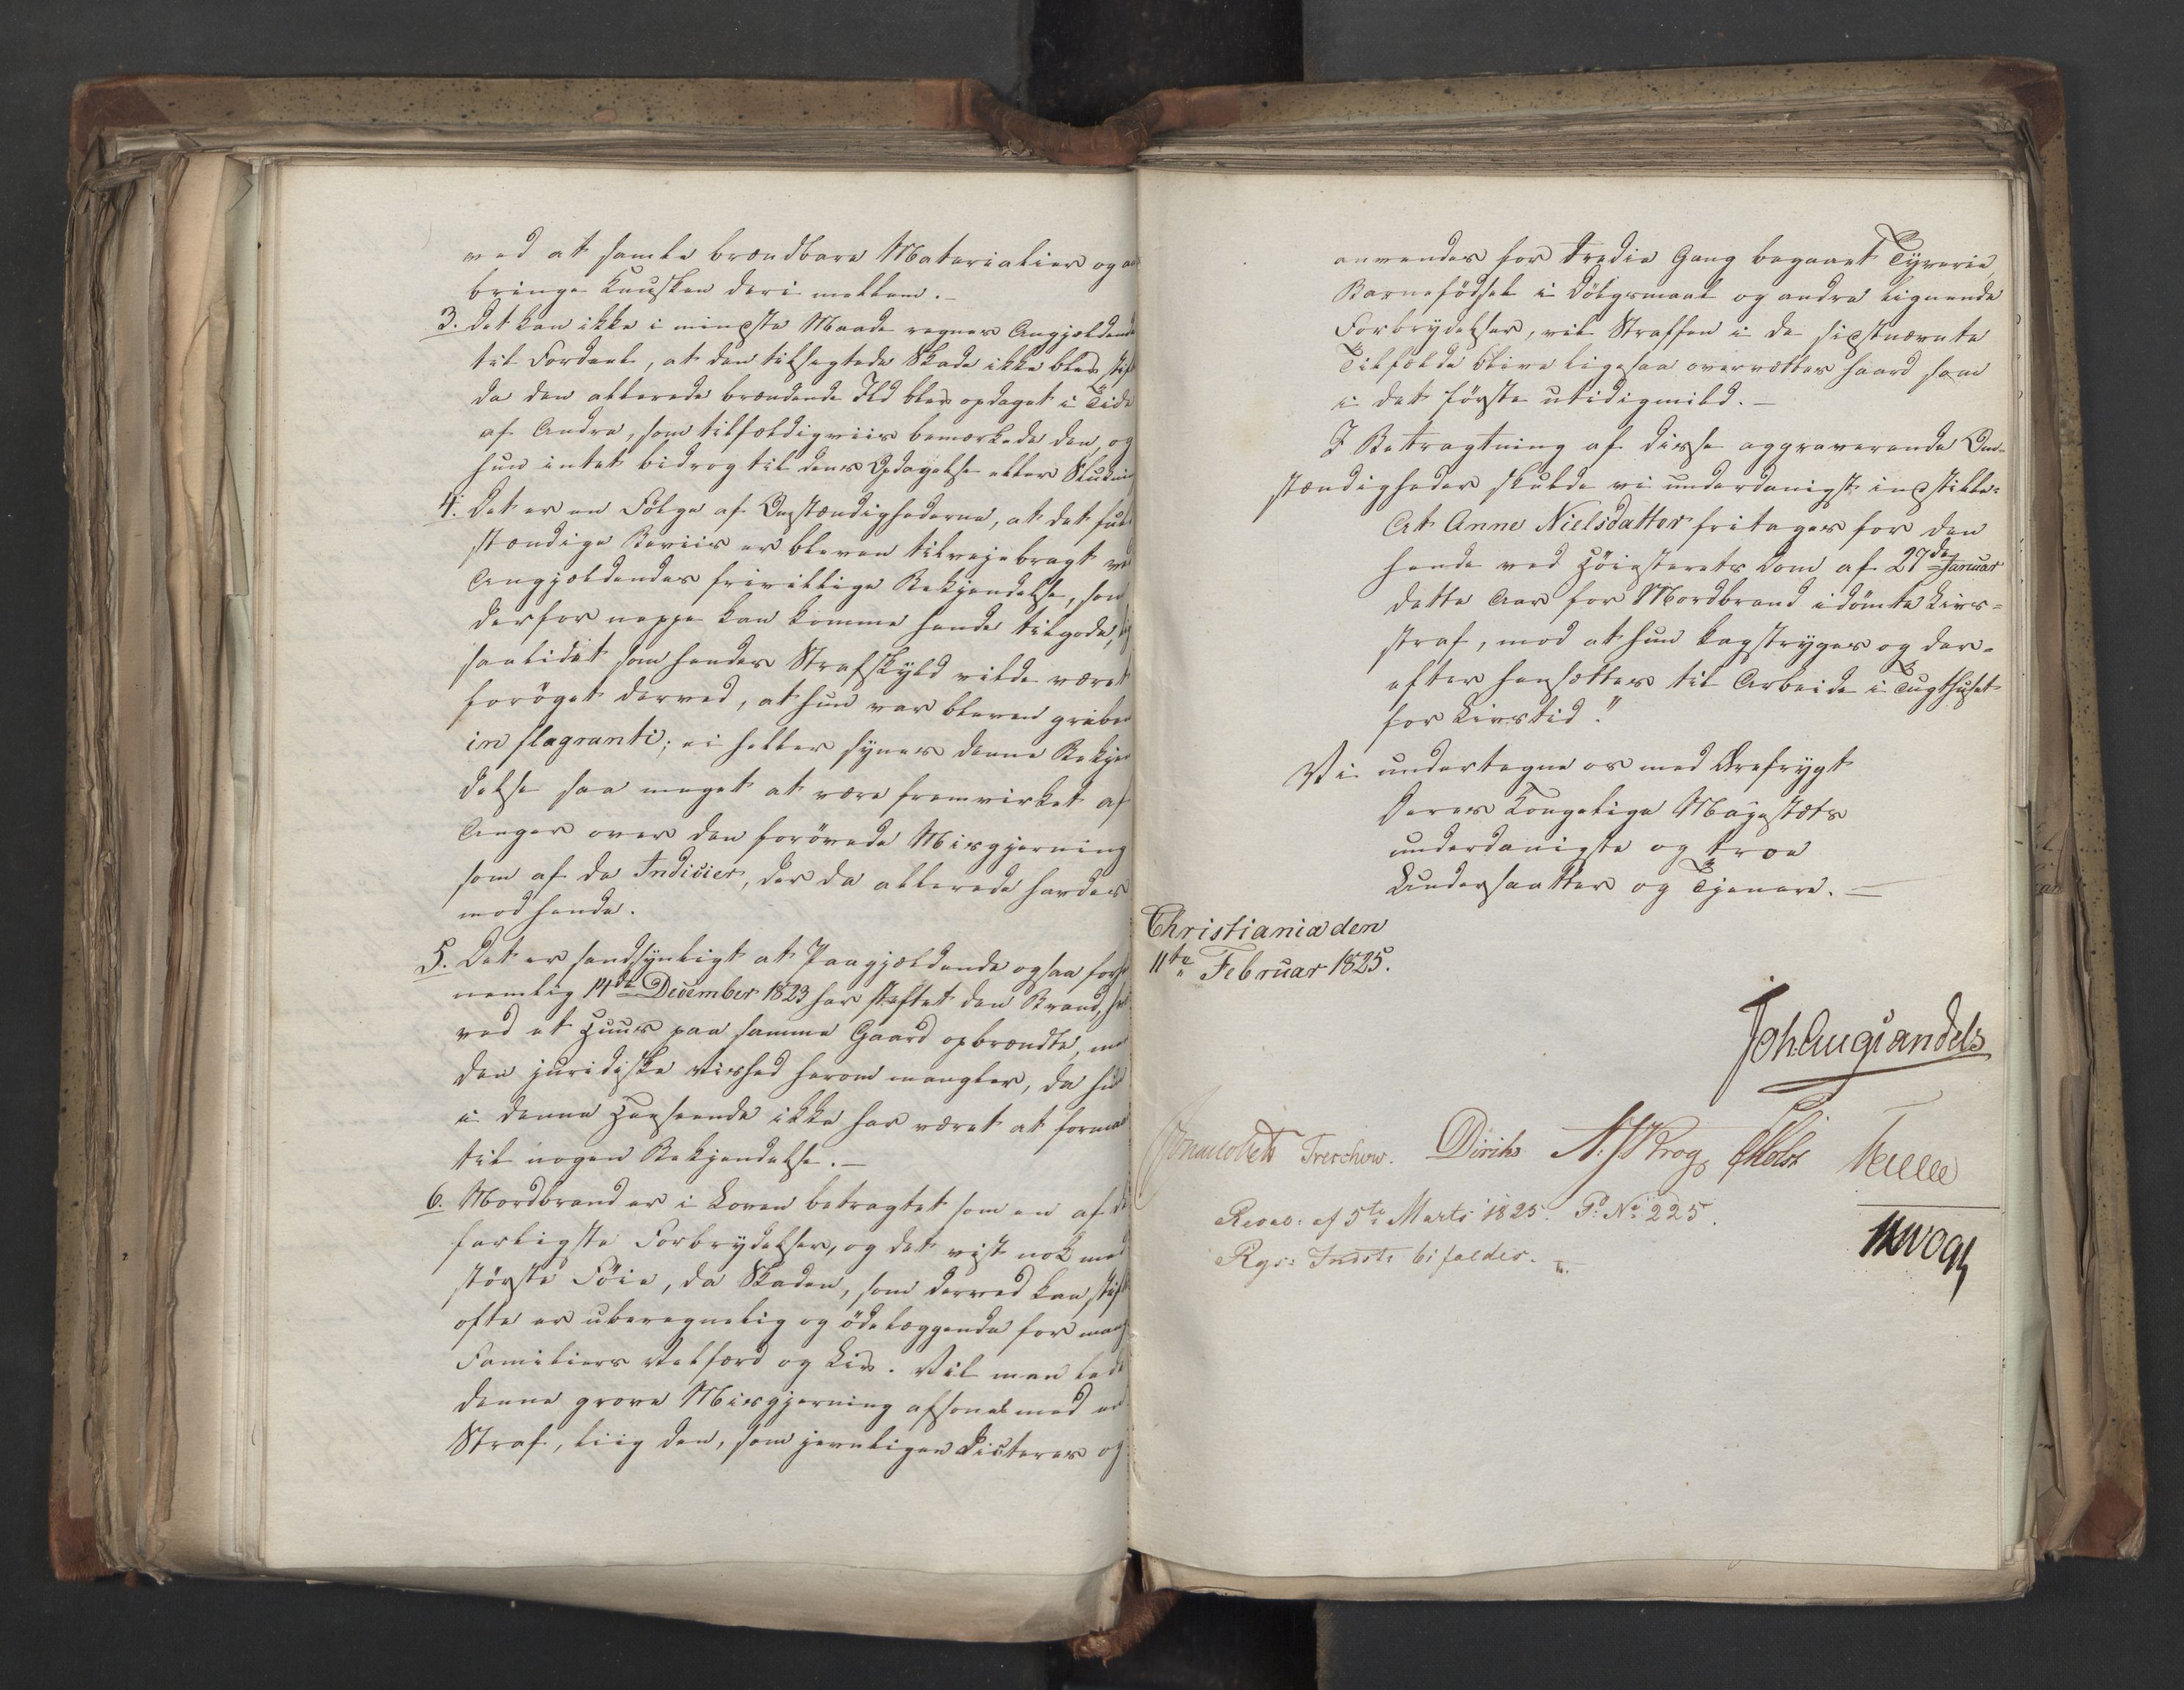 ved at samle brændbare Materialier og an
bringe Knusken deri mellem.-
3. Det kan ikke i mindste Maade regnes Angjældende
til Fordeel, at den tilsigtede Skade ikke blev stif
da den allerede brændende Ild blev opdaget i Tide
af Andre, som tilfældigviis bemærkede den, og
hun intet bidrog til dens Opdagelse eller Slukni
4. Det er en Følge af Omstændighederne, at det fuld
stændige Beviis er bleven tilvejebragt ved
Angjældendes frivillige Bekjendelse, som
derfor neppe kan komme hende tilgode, lig
saalidet som hendes Strafskyld vilde været
forøget derved, at hun var bleven greben
in flagranti; ei heller synes denne Bekjen
delse saa meget at være fremvirket af
Anger over den forøvede Misgjerning
som af de Indicier, der da allerede havdes
mod hende.
5. Det er sandsynligt at Paagjældende ogsaa forh
nemlig 14de December 1823 har stiftet den Brand, hvor
ved et Huus paa samme Gaard opbrændte, men
den juridiske Vished herom mangler, da hun
i denne Henseende ikke har været at formaae
til nogen Bekjendelse.-
6. Mordbrand er i Loven betragtet som en af de
farligste Forbrydelser, og det vist nok med
største Føie, da Skaden, som derved kan stift
ofte er uberegnelig og ødelæggende for mang
Familiers Velfærd og Liv. Vil man lade
denne grove Misgjerning afsones med en
Straf, liig den, som jevnligen dicteres og
anvendes for tredie Gang begaaet Tyverie,
Barnefødsel i Dølgsmaal og andre lignende
Forbrydelser, vil Straffen i de sidstnævnte
Tilfælde blive ligesaa overvættes haard som
i det første utidigmild.-
I Betragtning af disse aggraverende Om-
stændigheder skulde vi underdanigst indstille:
At Anne Nielsdatter fritages for den
hende ved Høiesterets Dom af 27de Januar
dette Aar for Mordbrand idømte Livs=
straf, mod at hun kagstryges og der-
efter hensættes til Arbeide i Tugthuset
for Livstid."
Vi undertegne os med Ærefrygt
Deres Kongelige Majestæts
underdanigste og troe
Undersaatter og Tjenere.-
Christiania den
11te Februar 1825.
Joh Aug Sandels
Sommerhielm Treschow. Diriks N. J. Krog P Holst Fasting
Resol: af 5te Marts 1825. P. No 225.
Rgs: Indst: bifaldes.